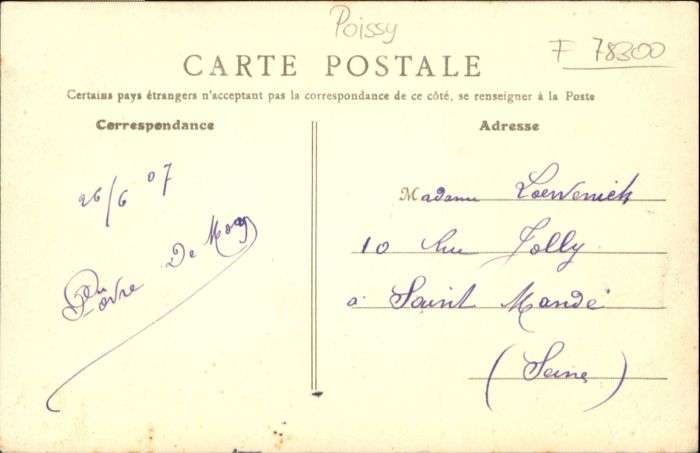 Poissy
F 78300
CARTE POSTALE
Certains pays étrangers n'acceptant pas la correspondance de ce côté, se renseigner à la Poste
Correspondance
26/6 07
De
Adresse
Madame Loevenick
10 Rue Jolly
à Saint Mandé
(Seine)